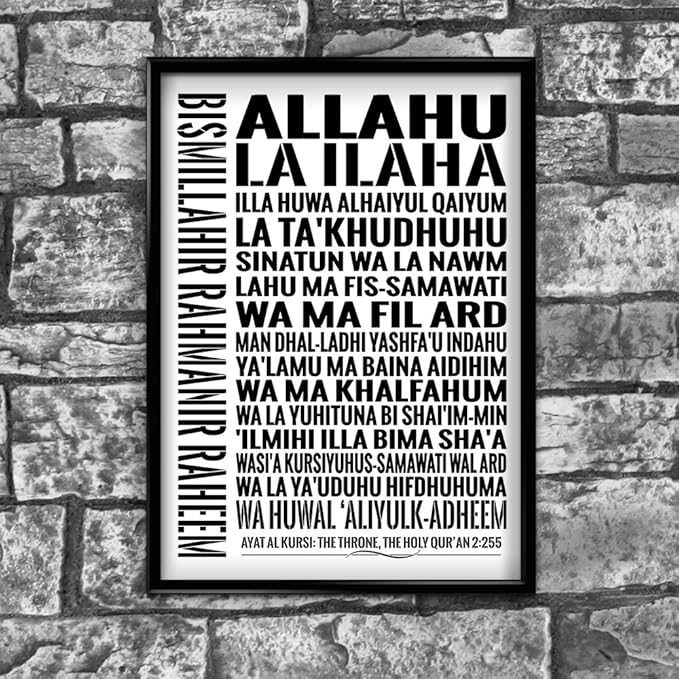 BISMILLAHIR RAHMANIR RAHEEM
ALLAHU
LA ILAHA
ILLA HUWA ALHAIYUL QAIYUM
LA TA'KHUDHUHU
SINATUN WA LA NAWM
LAHU MA FIS-SAMAWATI
WA MA FIL ARD
MAN DHAL-LADHI YASHFA'U INDAHU
YA'LAMU MA BAINA AIDIHIM
WA MA KHALFAHUM
WA LA YUHITUNA BI SHAI'IM-MIN
'ILMIHI ILLA BIMA SHA'A
WASI'A KURSIYUHUS-SAMAWATI WAL ARD
WA LA YA'UDUHU HIFDHUHUMA
WA HUWAL ‘ALIYULK-ADHEEM
AYAT AL KURSI: THE THRONE, THE HOLY QUR'AN 2:255